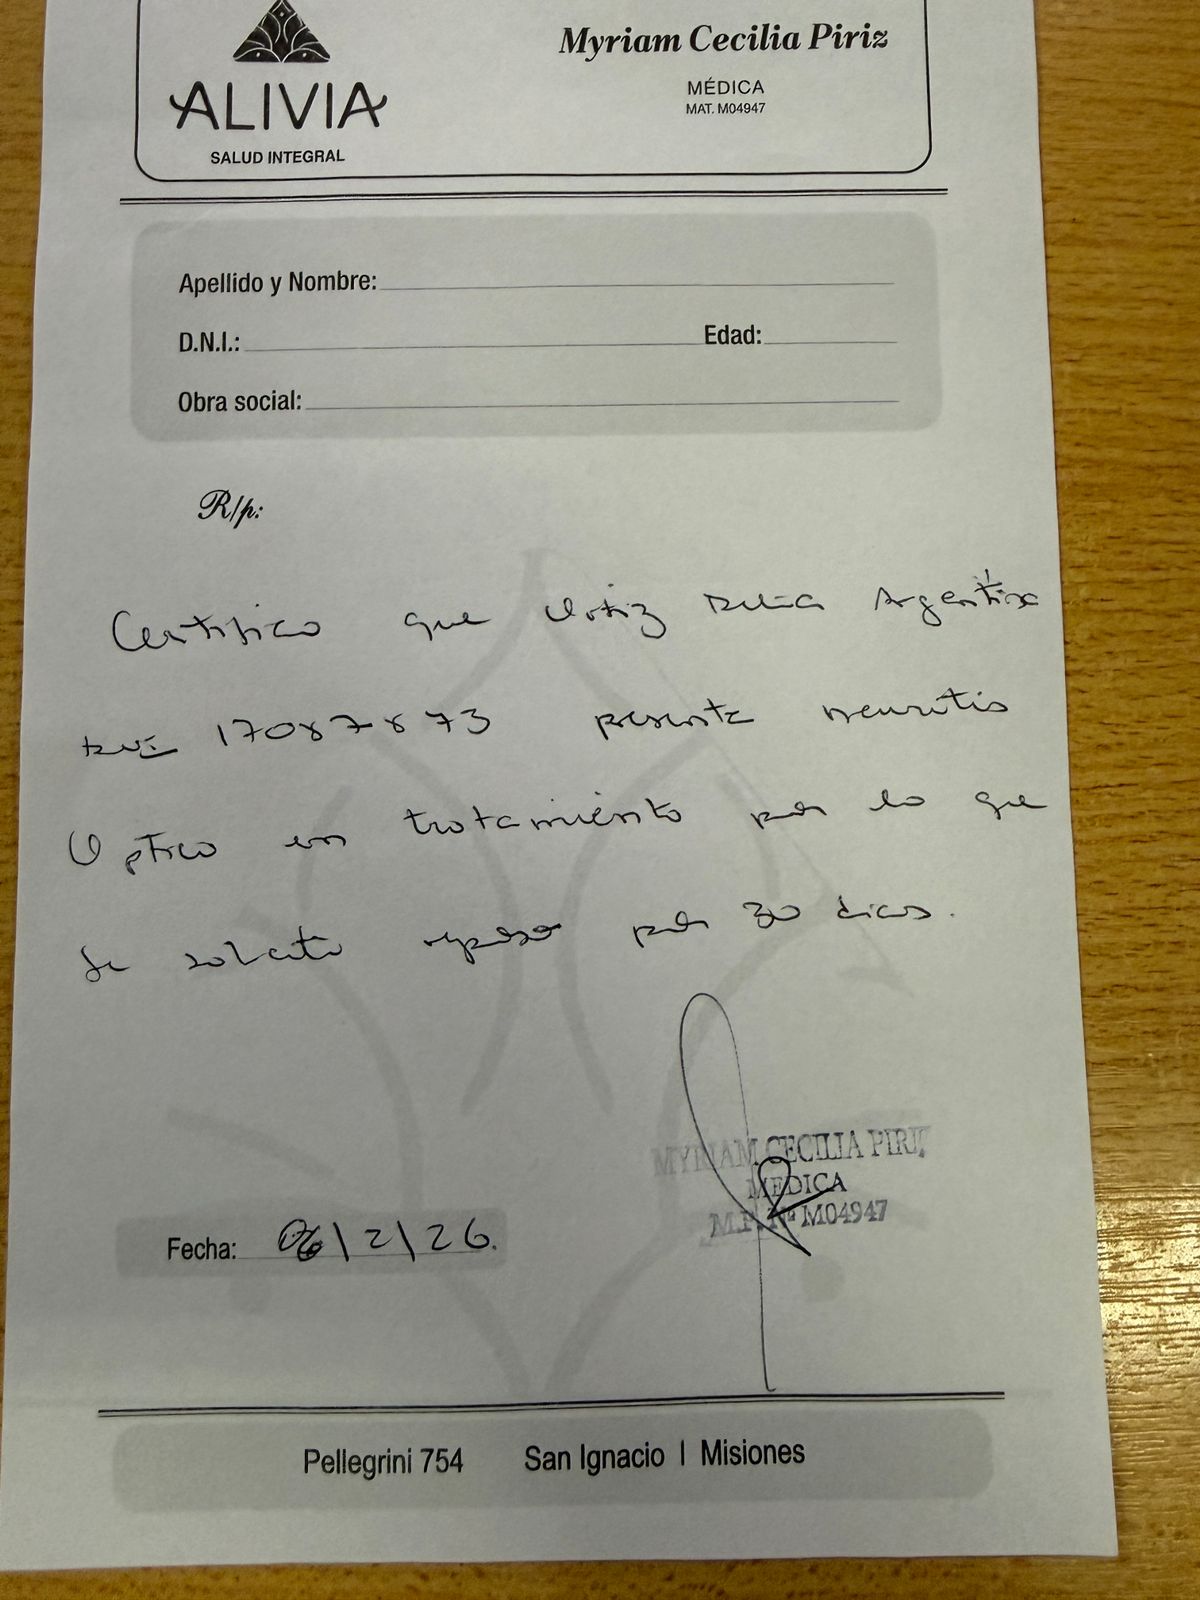 ALIVIA
SALUD INTEGRAL
Myriam Cecilia Piriz
MÉDICA
MAT. M04947
Apellido y Nombre:
D.N.I.: Edad:
Obra social:
R/p:
Certifico que Ortiz Delia Argentina
DNI 17087873 presenta neuritis
Optico en tratamiento por lo que
se solicita reposo por 30 dias.
MYRIAM CECILIA PIRIZ
MEDICA
M.P. Nº M04947
Fecha: 06/2/26.
Pellegrini 754 San Ignacio | Misiones